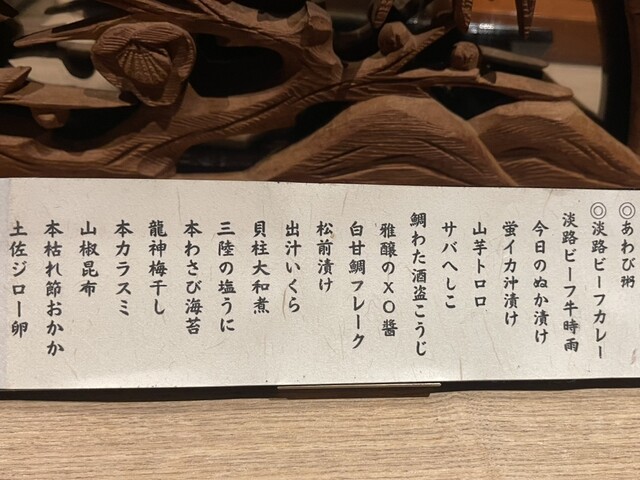 ◎あわび粥
◎淡路ビーフカレー
淡路ビーフ牛時雨
今日のぬか漬け
蛍イカ沖漬け
山芋トロロ
サバへしこ
鯛わた酒盗こうじ
雅醸のXO醬
白甘鯛フレーク
松前漬け
出汁いくら
貝柱大和煮
三陸の塩うに
本わさび海苔
龍神梅干し
本カラスミ
山椒昆布
本枯れ節おかか
土佐ジロー卵